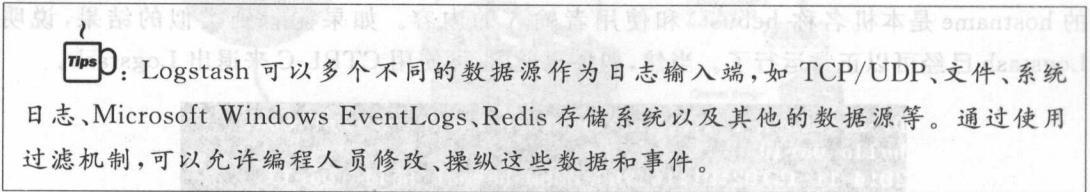 的 hostname 是本机名称
Tips：Logstash 可以多个不同的数据源作为日志输入端，如 TCP/UDP、文件、系统
日志、Microsoft Windows EventLogs、Redis 存储系统以及其他的数据源等。通过使用
过滤机制，可以允许编程人员修改、操纵这些数据和事件。